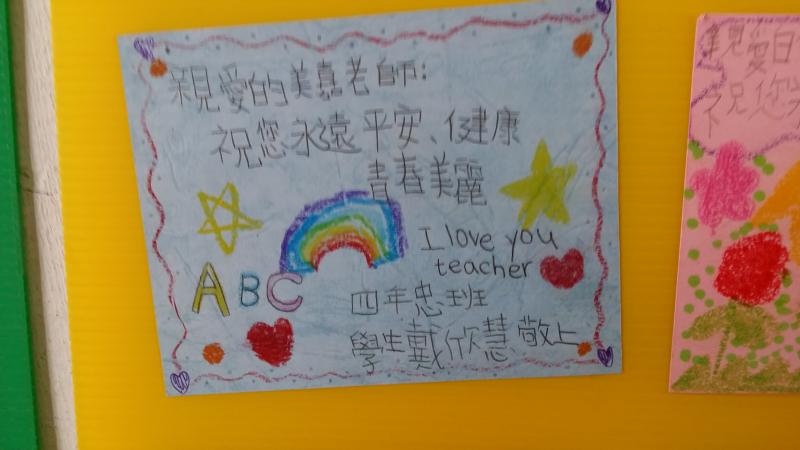 親愛的美嘉老師:
祝您永遠平安、健康
青春美麗
I love you
teacher
ABC
四年忠班
學生戴欣慧敬上
親愛
祝您